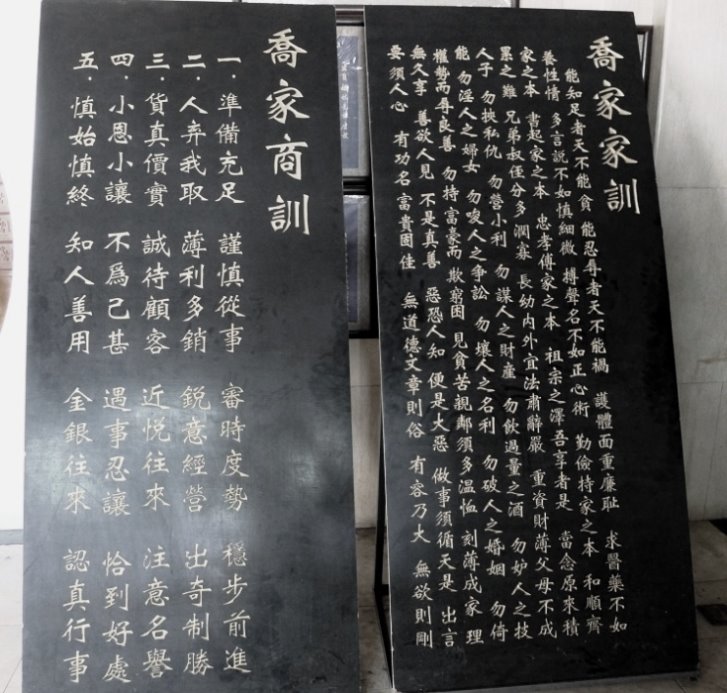 喬家家訓
能知足者天不能貧 能忍辱者天不能禍 護體面重廉恥 求醫藥不如
養性情 多言說不如慎細微 搏聲名不如正心術 勤儉持家之本 和順齊
家之本 書起家之本 忠孝傅家之本 祖宗之澤吾享者是 當念原來積
累之難 兄弟叔侄分多潤寡 長幼內外宜法肅辭嚴 重資財薄父母不成
人子 勿挾私仇 勿營小利 勿謀人之財產 勿飲過量之酒 勿妒人之技
能 勿淫人之婦女 勿唆人之爭訟 勿壞人之名利 勿破人之婚姻 勿倚
權勢而辱良善 勿持富豪而欺窮困 見貧苦親鄰須多溫恤 刻薄成家理
無久享 善欲人見 不是真善 惡恐人知 便是大惡 做事須循天是 出言
要須人心 有功名富貴困佳 無道德文章則俗 有容乃大 無欲則剛
喬家商訓
一．準備充足 謹慎從事 審時度勢 穩步前進
二．人弃我取 薄利多銷 銳意經營 出奇制勝
三．貨真價實 誠待顧客 近悅往來 注意名譽
四．小恩小讓 不爲己甚 遇事忍讓 恰到好處
五．慎始慎終 知人善用 金銀往來 認真行事